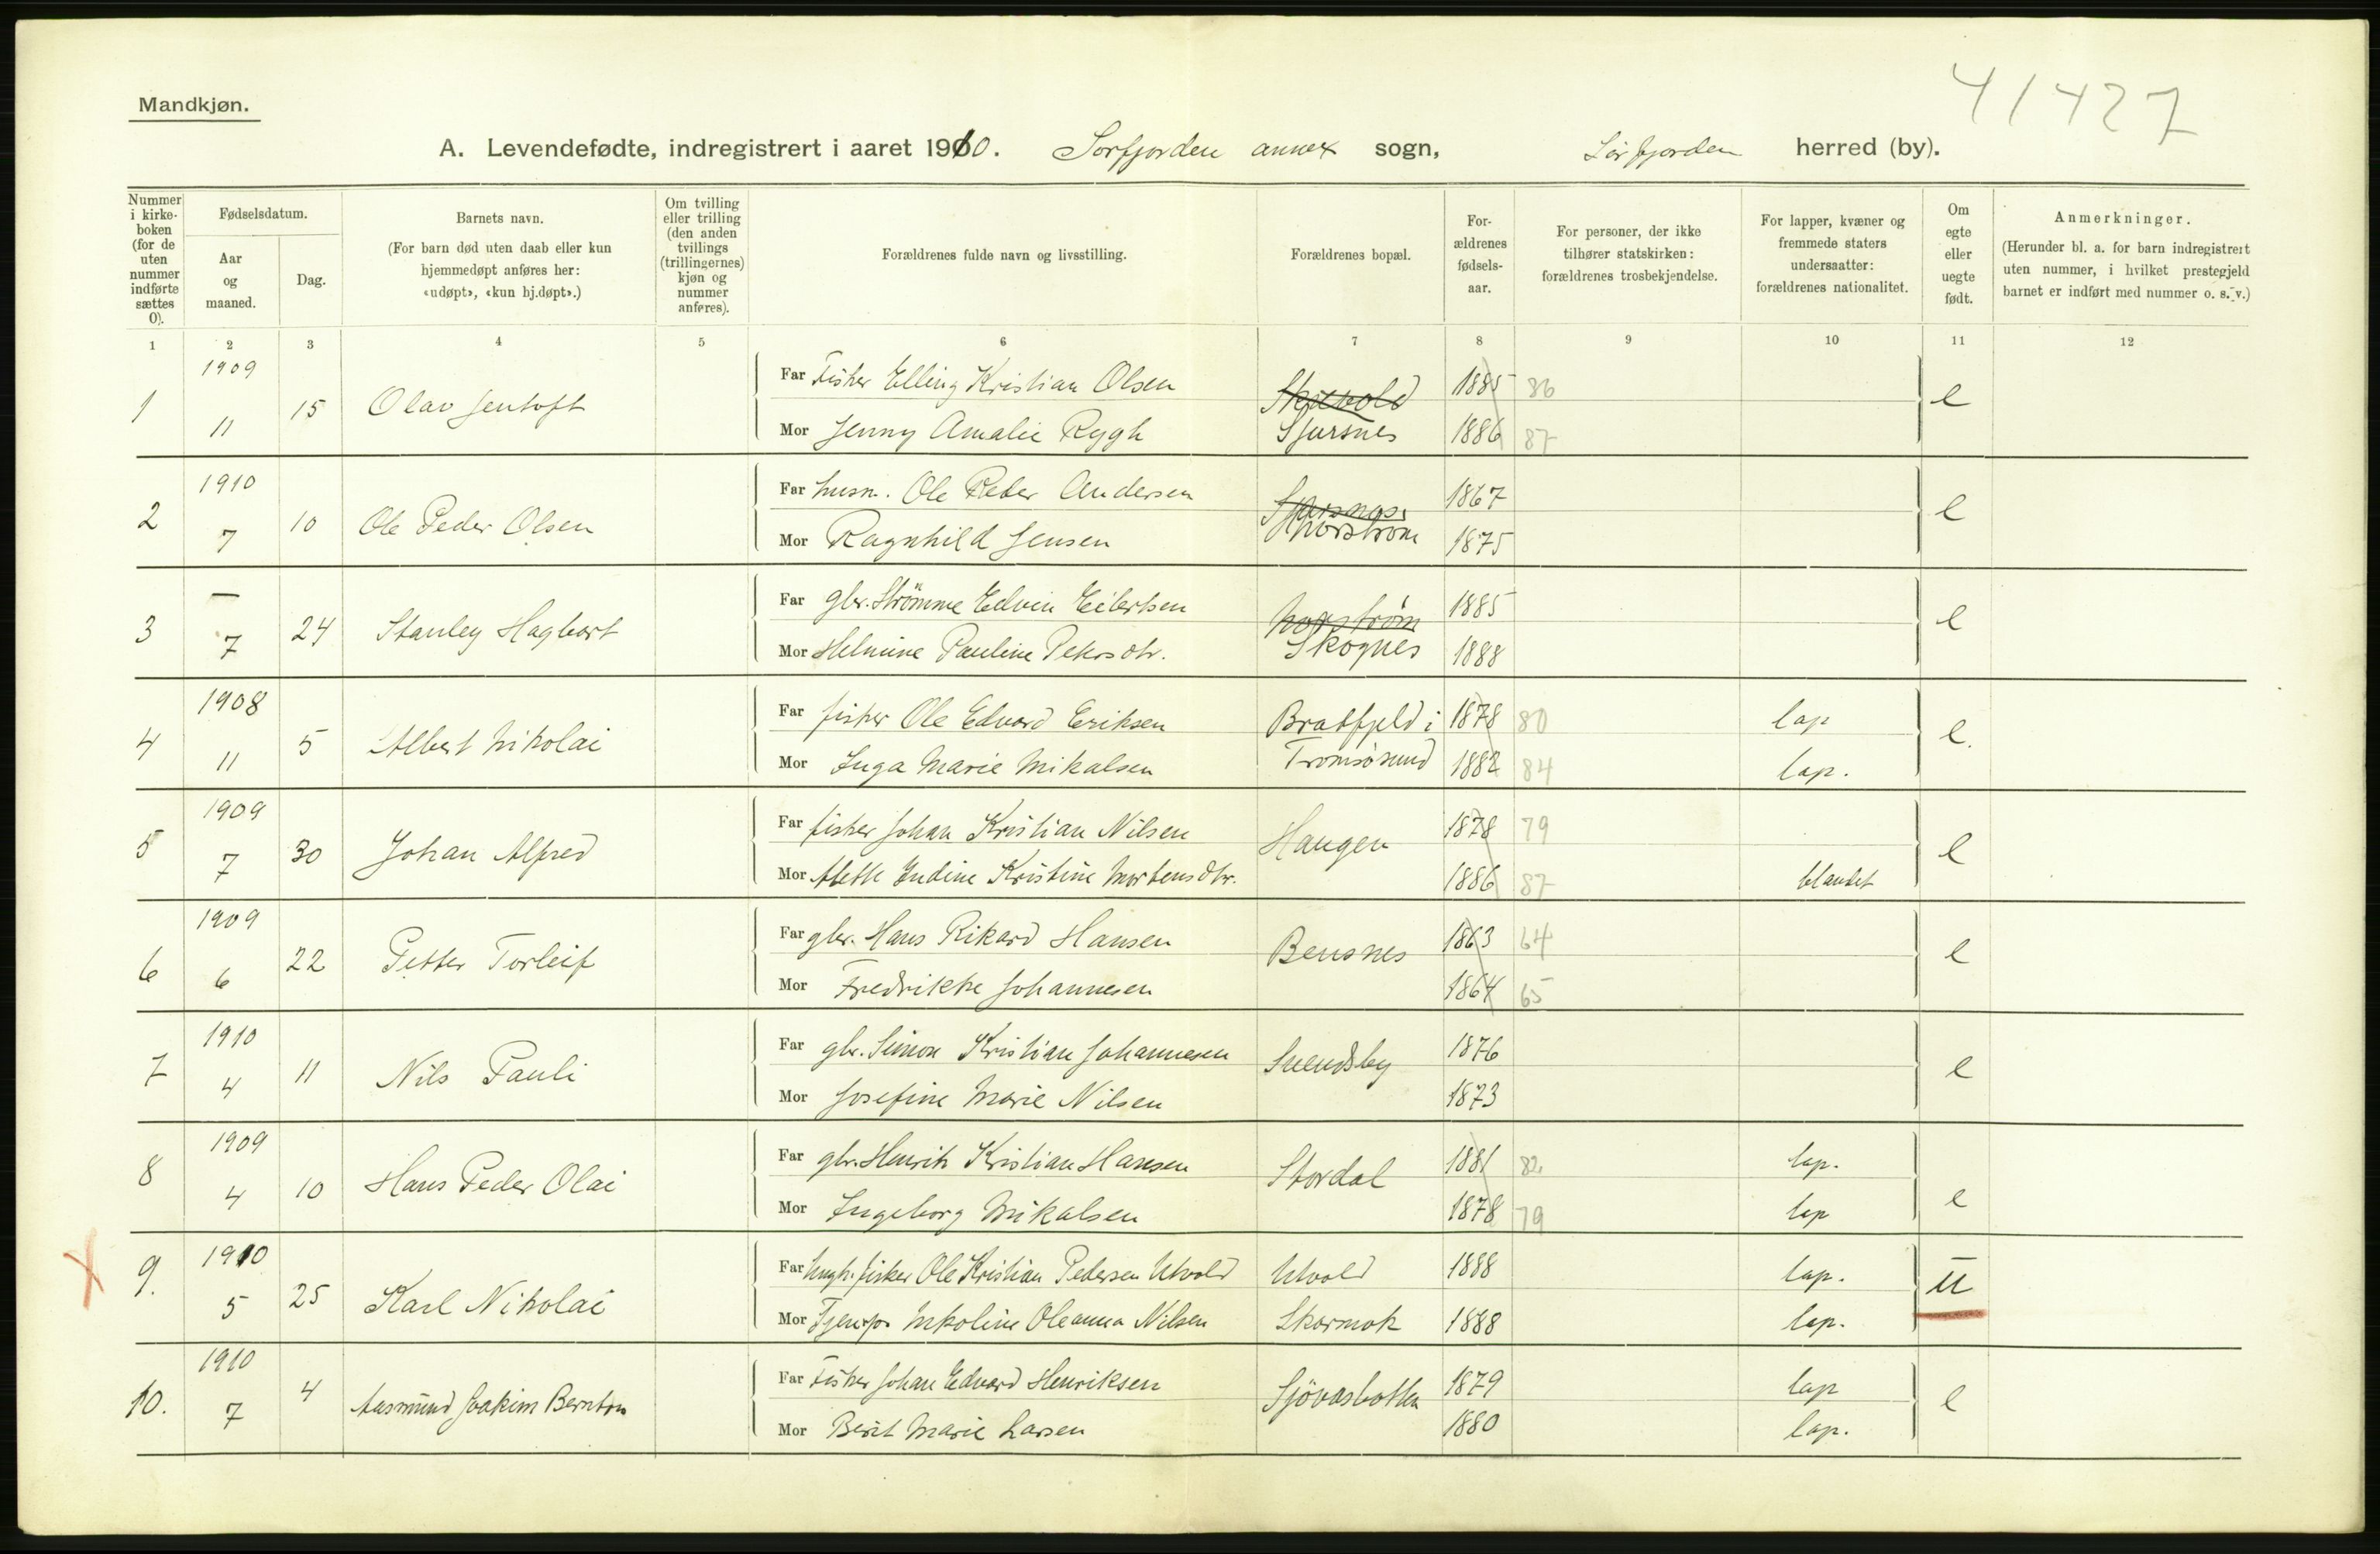 41427
Mandkjøn.
A. Levendefødte, indregistrert i aaret 1910. Sorfjorden annex sogn, Sørfjorden herred (by).
Nummer i kirkeboken (for de uten nummer indførte sættes 0).
Fødselsdatum.
Aar og maaned.
Dag.
Barnets navn.
(For barn død uten daab eller kun hjemmedøpt anføres her: «udøpt», «kun hj.døpt».)
Om tvilling eller trilling (den anden tvillings (trillingernes) kjøn og nummer anføres).
Forældrenes fulde navn og livsstilling.
Forældrenes bopæl.
Forældrenes fødselsaar.
For personer, der ikke tilhører statskirken: forældrenes trosbekjendelse.
For lapper, kvæner og fremmede staters undersaatter: forældrenes nationalitet.
Om egte eller uegte født.
Anmerkninger.
(Herunder bl. a. for barn indregistrert uten nummer, i hvilket prestegjeld barnet er indført med nummer o. s. v.)
1 2 3 4 5 6 7 8 9 10 11 12
1 1909 11 15 Olav Jentoft Far Fisker Elling Kristian Olsen Skævold 1885 86 e
Mor Jenny Amalie Rygh Sjursnes 1886 87
2 1910 7 10 Ole Peder Olsen Far husm. Ole Peder Andersen Sjursnes 1867 e
Mor Ragnhild Jensen Norstrøm 1875
3 — 7 24 Stanley Hagbart Far gbr. Strömme Edvin Eilertsen Norstrøm 1885 e
Mor Helmine Pauline Petersdtr. Skognes 1888
4 1908 11 5 Albert Nikolai Far fisker Ole Edvard Eriksen Bratfjeld i 1878 80 lap e.
Mor Inga Marie Mikalsen Tromsøsund 1882 84 lap.
5 1909 7 30 Johan Alfred Far fisker Johan Kristian Nilsen Haugen 1878 79 e
Mor Alette Indine Kristine Mortensdtr. 1886 87 blandet
6 1909 6 22 Petter Torleif Far gbr. Hans Rikard Hansen Bensnes 1863 64 e
Mor Fredrikke Johannesen 1864 65
7 1910 4 11 Nils Pauli Far gbr. Simon Kristian Johannesen Svendsby 1876 e
Mor Josefine Marie Nilsen 1873
8 1909 4 10 Hans Peder Olai Far gbr. Henrik Kristian Hansen Stordal 1881 82 lap. e
Mor Ingeborg Mikalsen 1878 79 lap
9. 1910 5 25 Karl Nikolai Far Ungk. fisker Ole Kristian Pedersen Utvold Utvold 1888 lap. u
Mor Nikoline Oleanna Nilsen Skarmok 1888 lap.
10. 1910 7 4 Aasmund Joakim Bernton Far Fisker Johan Edvard Henriksen Sjövasbotten 1879 lap e
Mor Berit Marie Larsen 1880 lap.